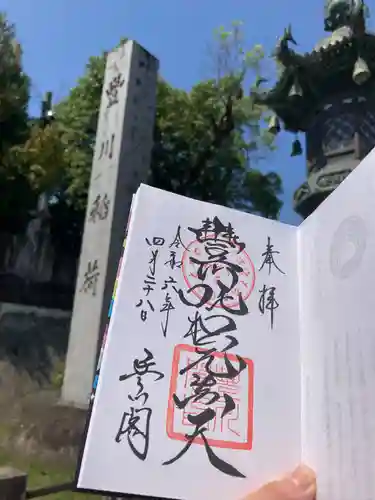 豐川稲荷
奉拝
豊川吒枳尼眞天
令和六年
四月二十八日
豊川閣